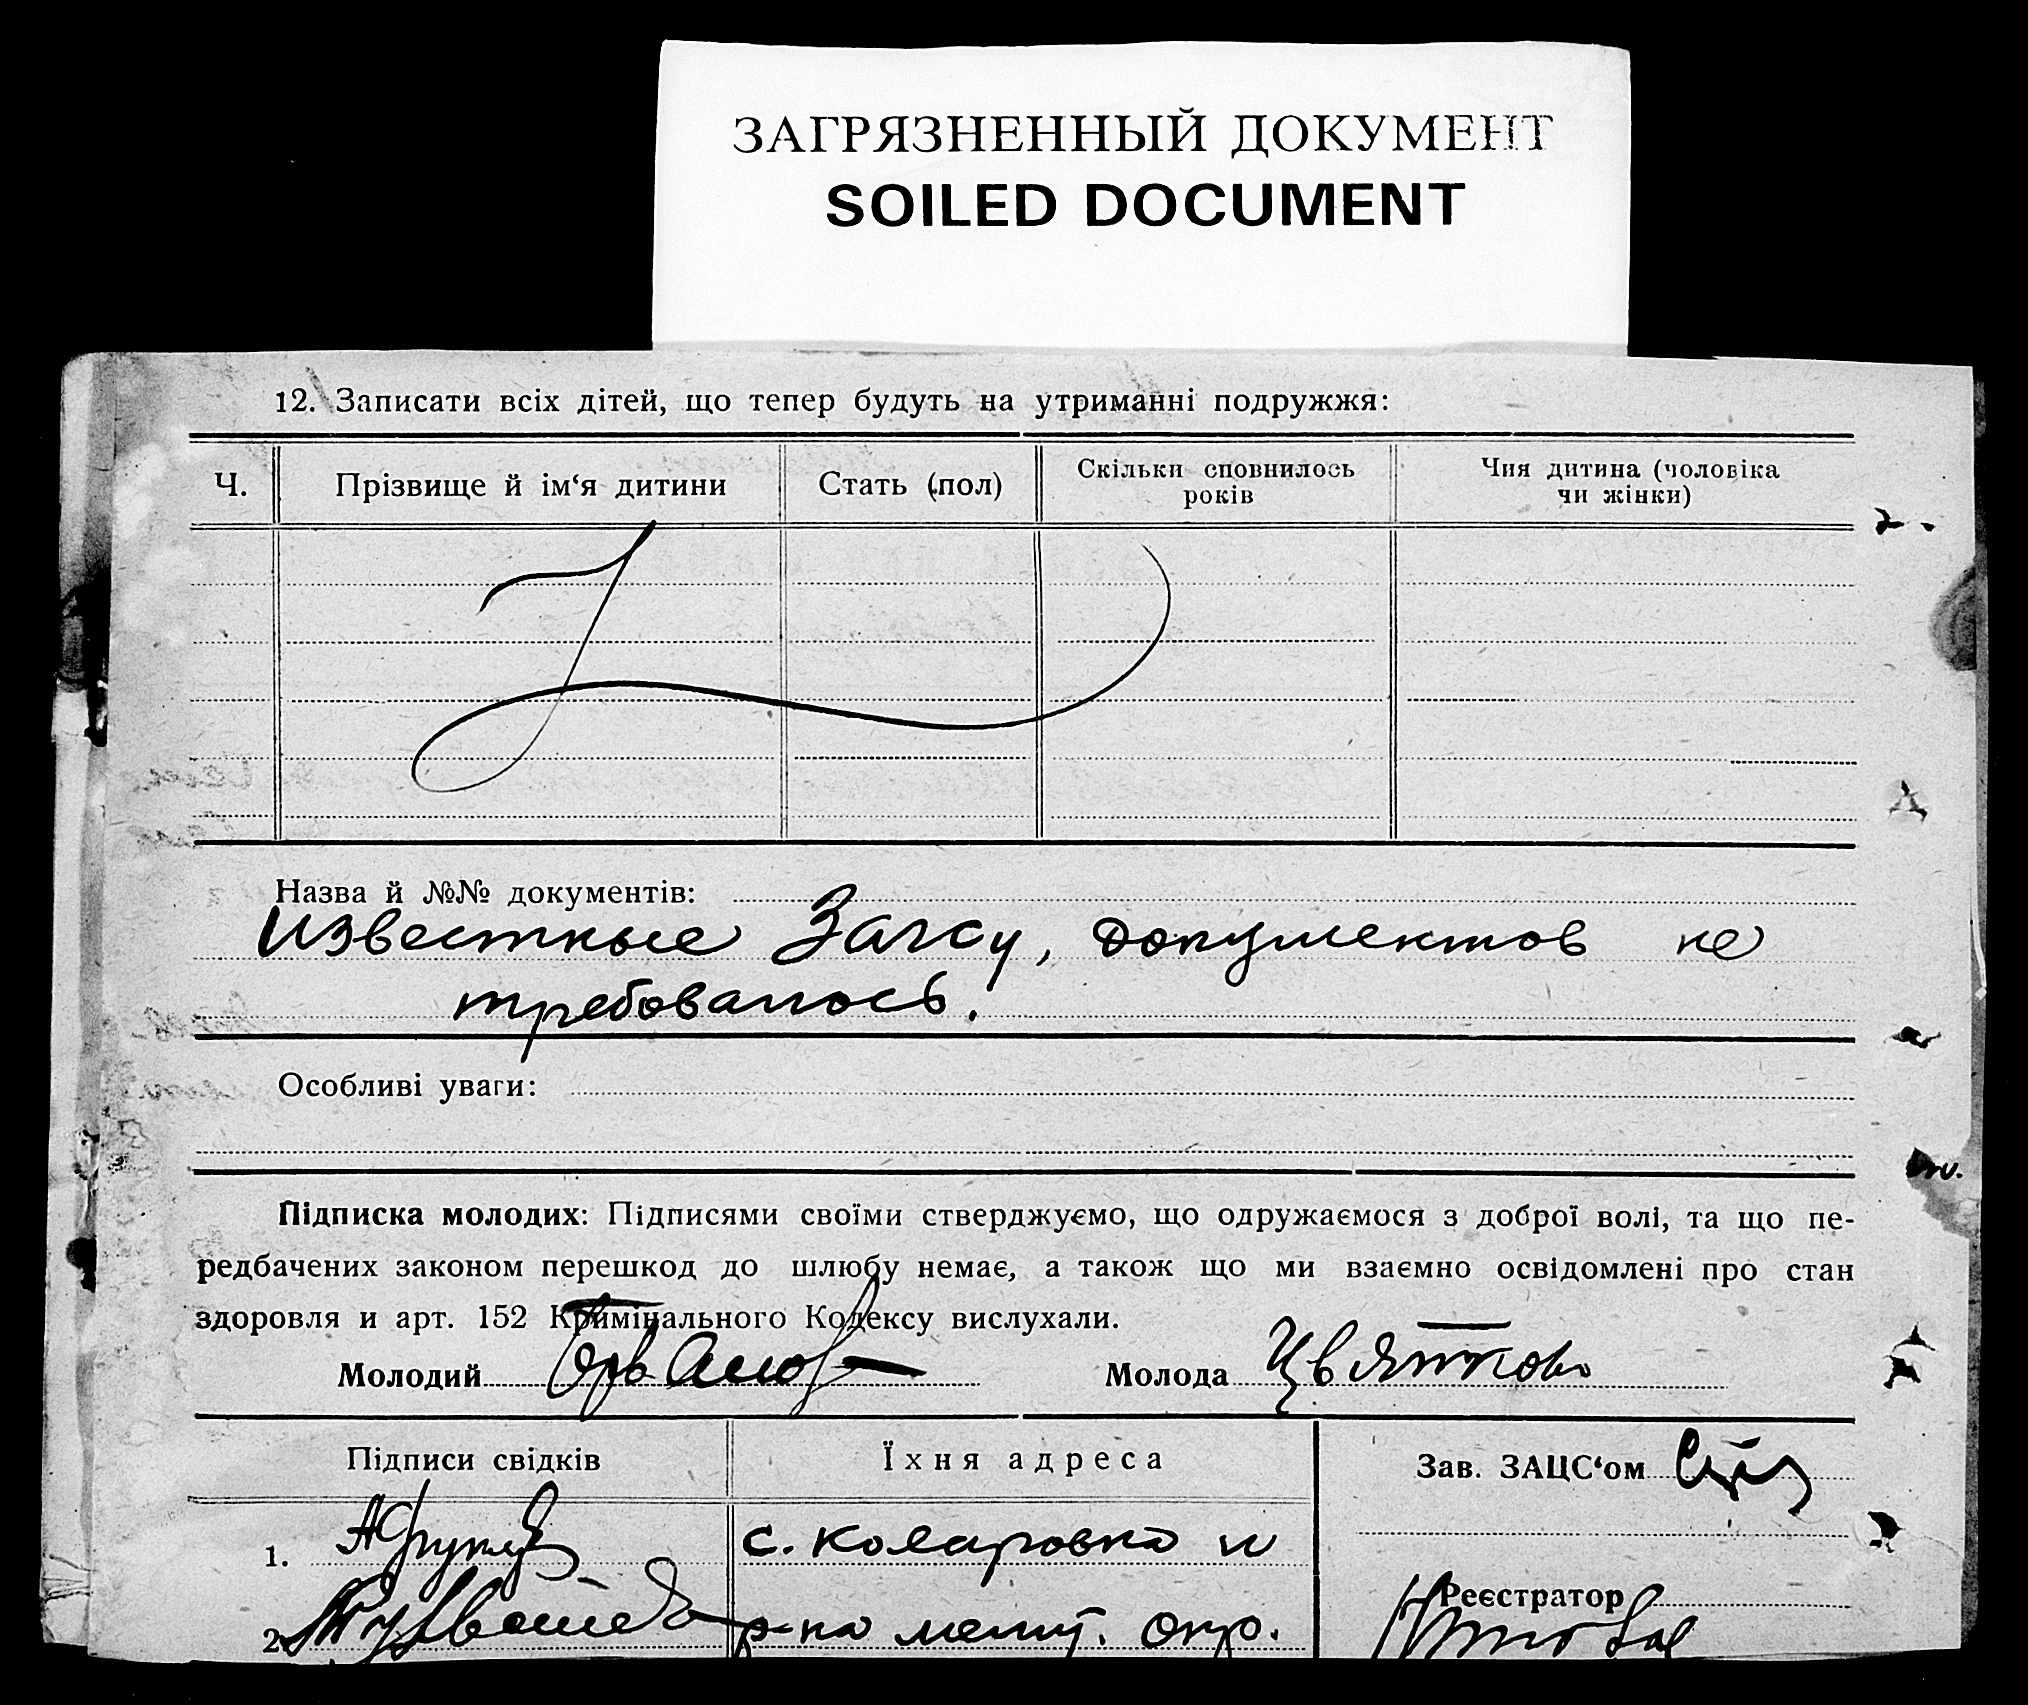 ЗАГРЯЗНЕННЫЙ ДОКУМЕНТ
SOILED DOCUMENT
12. Записати всіх дітей, що тепер будуть на утриманні подружжя:
Ч.
Прізвище й ім‘я дитини
Стать (пол)
Скільки сповнилось
років
Чия дитина (чоловіка
чи жінки)
Назва й №№ документів:
Известные Загсу, документов не
требовалось.
Особливі уваги:
Підписка молодих: Підписями своїми стверджуємо, що одружаємося з доброї волі, та що пе-
редбачених законом перешкод до шлюбу немає, а також що ми взаємно освідомлені про стан
здоровля и арт. 152 Кримінального Кодексу вислухали.
Молодий
Молода Цвяткова
Підписи свідків
Їхня адреса
Зав. ЗАЦС‘ом
1.
с. Коларовка и
Реєстратор
2.
р-на мелит. окр.